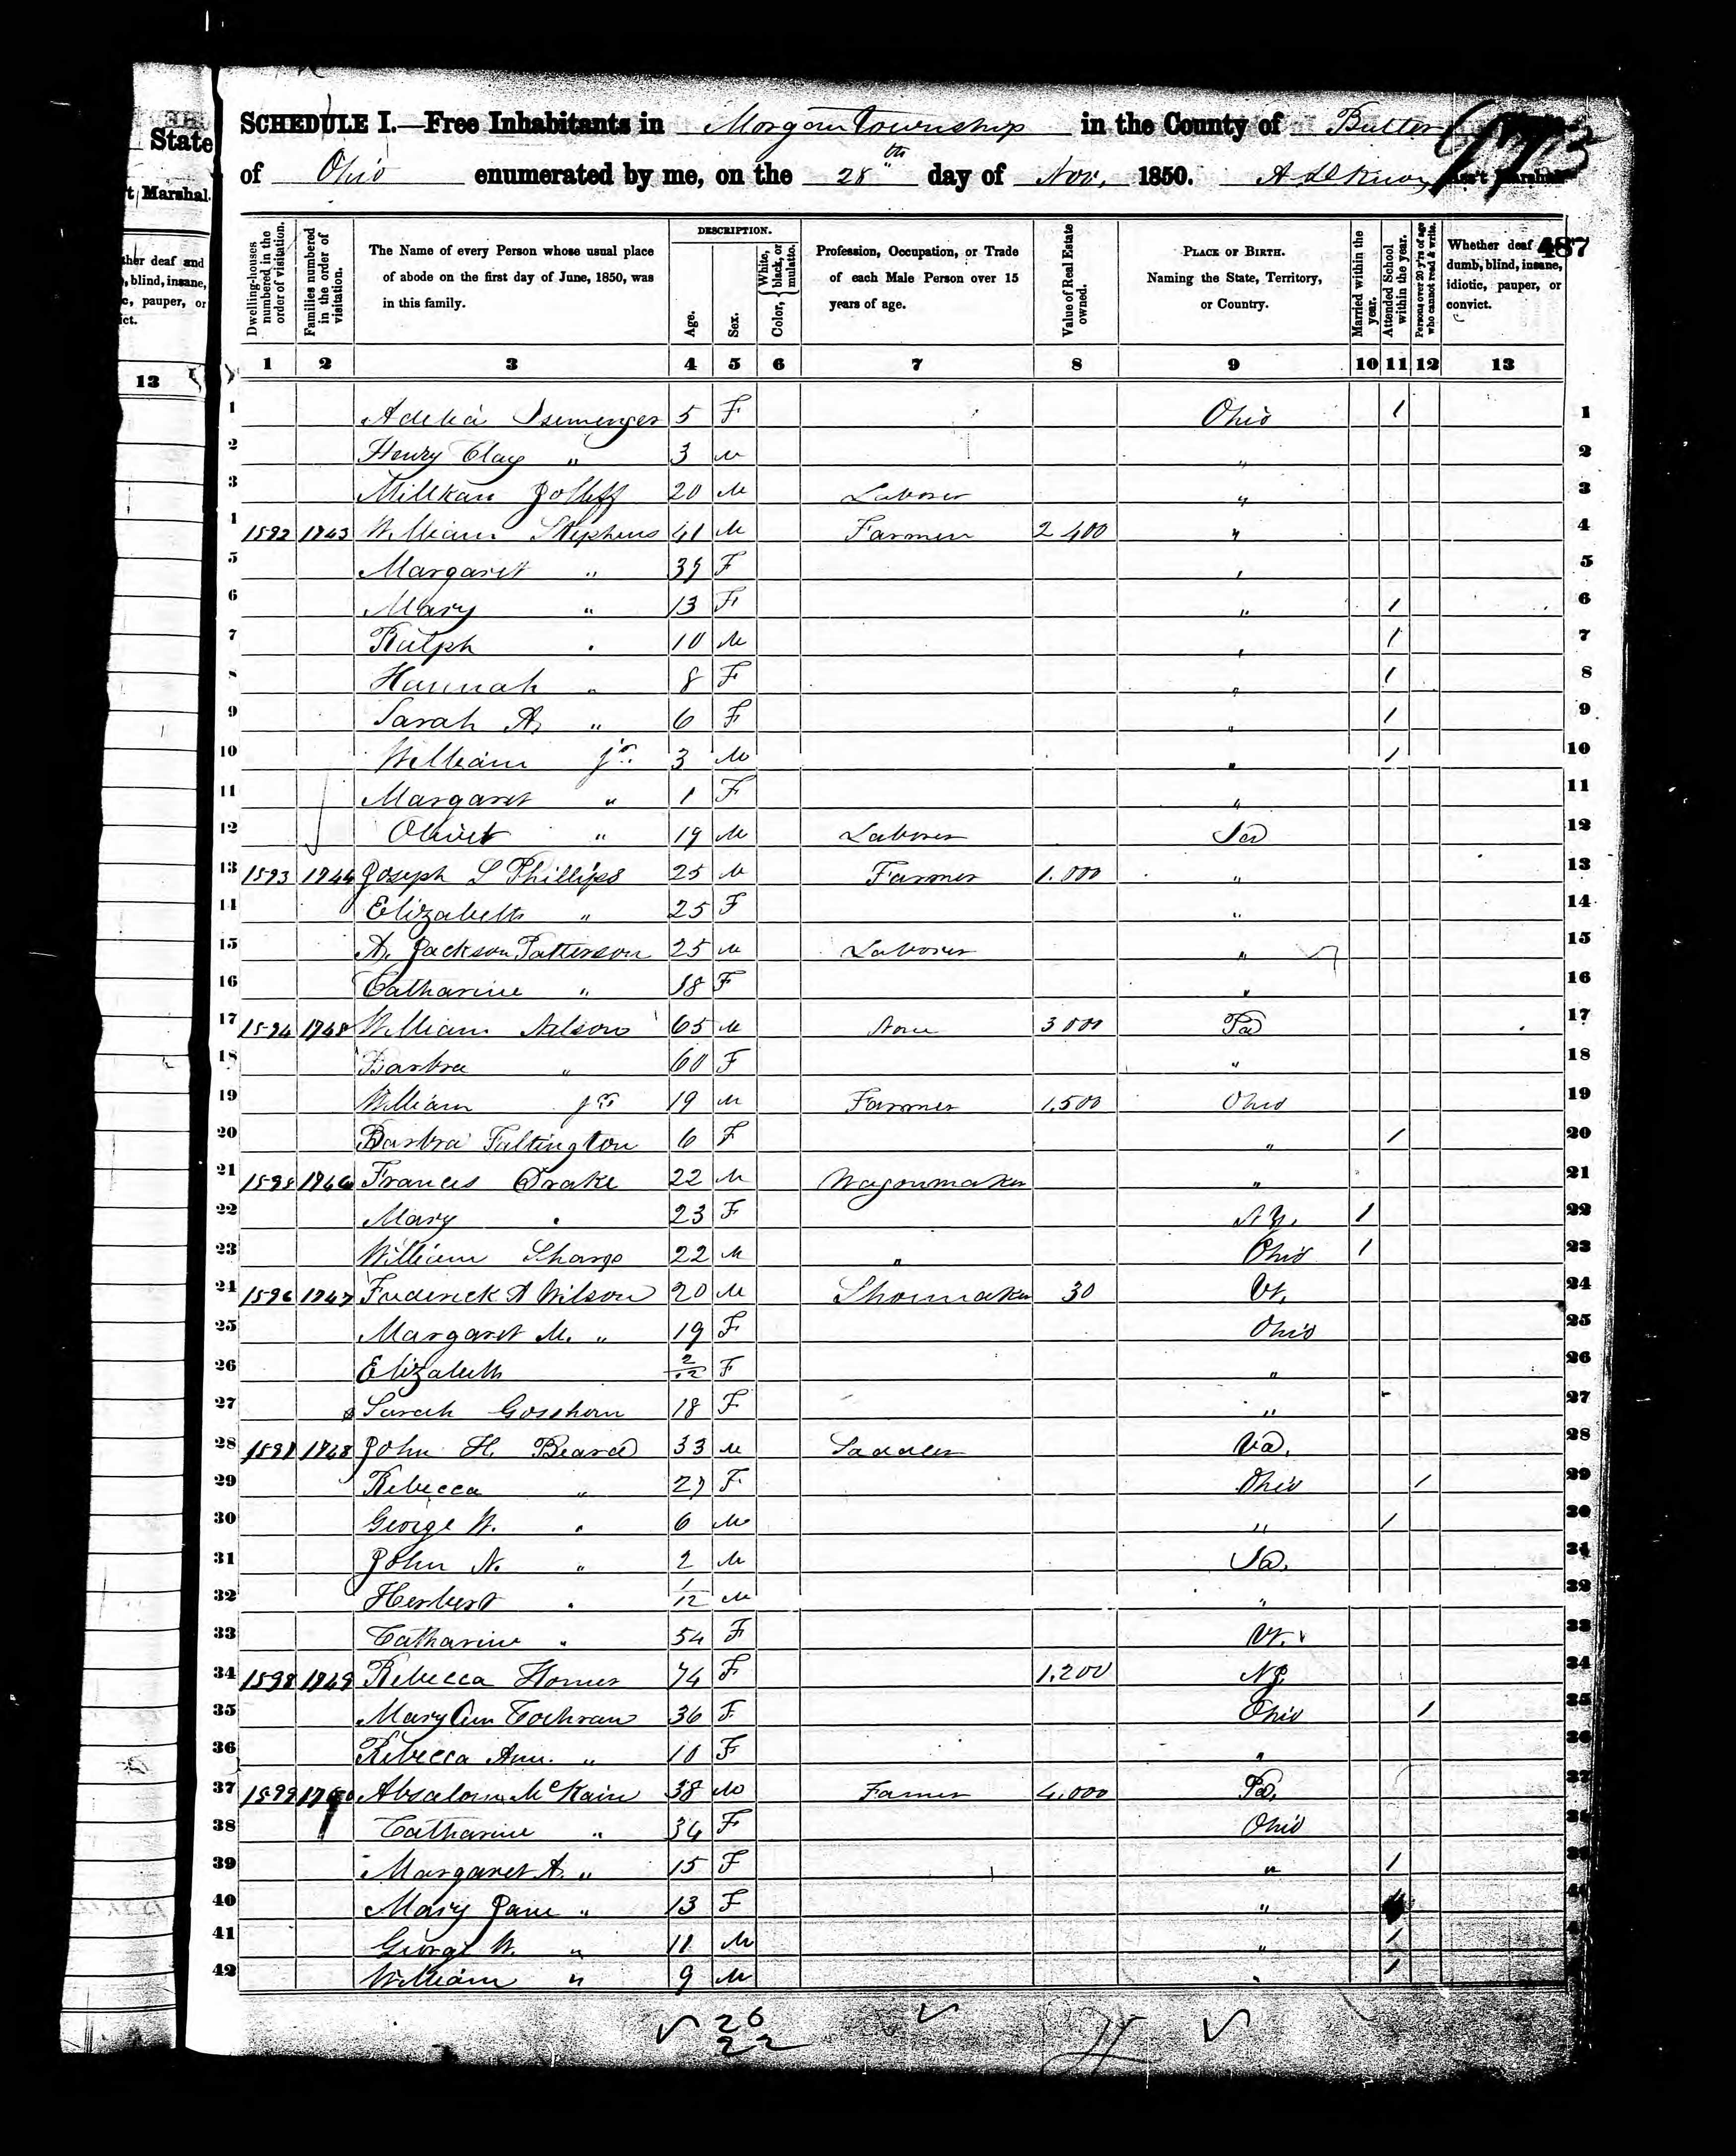 State
t Marshal.
ther deaf and
, blind, insane,
c, pauper, or
ict.
13
SCHEDULE I.—Free Inhabitants in Morgan Township in the County of Butler
of Ohio enumerated by me, on the 28th day of Nov. 1850. Ass't Marshal.
487
Dwelling-houses numbered in the order of visitation.
Families numbered in the order of visitation.
The Name of every Person whose usual place of abode on the first day of June, 1850, was in this family.
DESCRIPTION.
Age.
Sex.
Color, White, black, or mulatto.
Profession, Occupation, or Trade of each Male Person over 15 years of age.
Value of Real Estate owned.
PLACE OF BIRTH. Naming the State, Territory, or Country.
Married within the year.
Attended School within the year.
Persons over 20 y'rs of age who cannot read & write.
Whether deaf dumb, blind, insane, idiotic, pauper, or convict.
1 2 3 4 5 6 7 8 9 10 11 12 13
1 Adelia 5 F Ohio / 1
2 Henry Clay " 3 M " 2
3 20 M Laborer " 3
1 1592 1743 William Stephens 41 M Farmer 2 400 " 4
5 Margaret " 39 F " 5
6 Mary " 13 F " / 6
7 Ralph " 10 M " / 7
8 Hannah " 8 F " / 8
9 Sarah A. " 6 F " / 9
10 William Jr. 3 M " / 10
11 Margaret " 1 F " 11
12 Oliver " 19 M Laborer 12
13 1593 1744 Joseph L Phillips 25 M Farmer 1.000 " 13
14 Elizabeth " 25 F " 14
15 A. Jackson Patterson 25 M Laborer " 15
16 Catharine " 18 F " 16
17 1594 1745 William 65 M None 3 000 Pa 17
18 Barbra " 60 F " 18
19 William Jr 19 M Farmer 1.500 Ohio 19
20 Barbra Taltington 6 F " / 20
21 1595 1746 Frances Drake 22 M Wagonmaker " 21
22 Mary " 23 F N.Y. / 22
23 William Sharp 22 M " Ohio / 23
24 1596 1747 Frederick A Wilson 20 M Shoemaker 30 Vt. 24
25 Margaret M. " 19 F Ohio 25
26 Elizabeth 2/12 F " 26
27 Sarah Gosshorn 18 F " 27
28 1597 1748 John H. Beard 33 M Saddler Va. 28
29 Rebecca " 27 F Ohio / 29
30 George W. " 6 M " / 30
31 John N. " 2 M 31
32 Herbert " 1/12 M " 32
33 Catharine " 54 F 33
34 1598 1749 Rebecca Homer 74 F 1.200 N J. 34
35 Mary Ann Cochran 36 F Ohio / 35
36 Rebecca Ann. " 10 F " 36
37 1599 1750 Absalom McKain 38 M Farmer 4.000 Pa. 37
38 Catharine " 34 F Ohio 38
39 Margaret A. " 15 F " / 39
40 Mary Jane " 13 F " 40
41 George W. " 11 M " / 41
42 William " 9 M " /
20
22